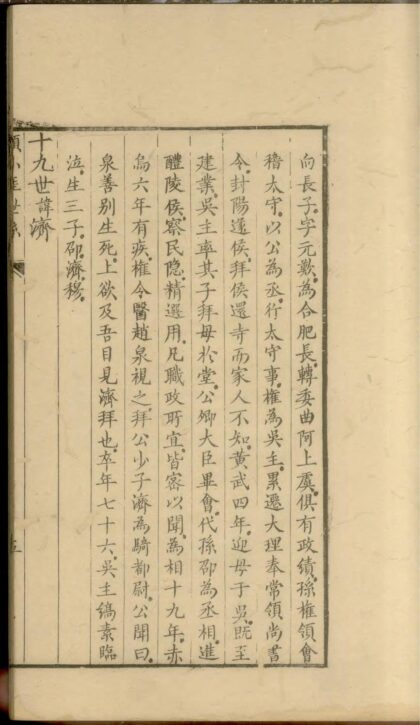 向長子字元歎為合肥長轉婁曲阿上虞俱有政績孫權領會
稽太守以公為丞行太守事權為吳主累遷大理奉常領尚書
令封陽遂侯拜侯還寺而家人不知黃武四年迎母于吳既至
建業吳主率其子拜母於堂公卿大臣畢會代孫邵為丞相進
醴陵侯察民隱精選用凡職政所宜皆密以聞為相十九年赤
烏六年有疾權令醫趙泉視之拜公少子濟為騎都尉公聞曰
泉善別生死上欲及吾目見濟拜也卒年七十六吳主縞素臨
泣生三子邵濟穆
十九世諱濟